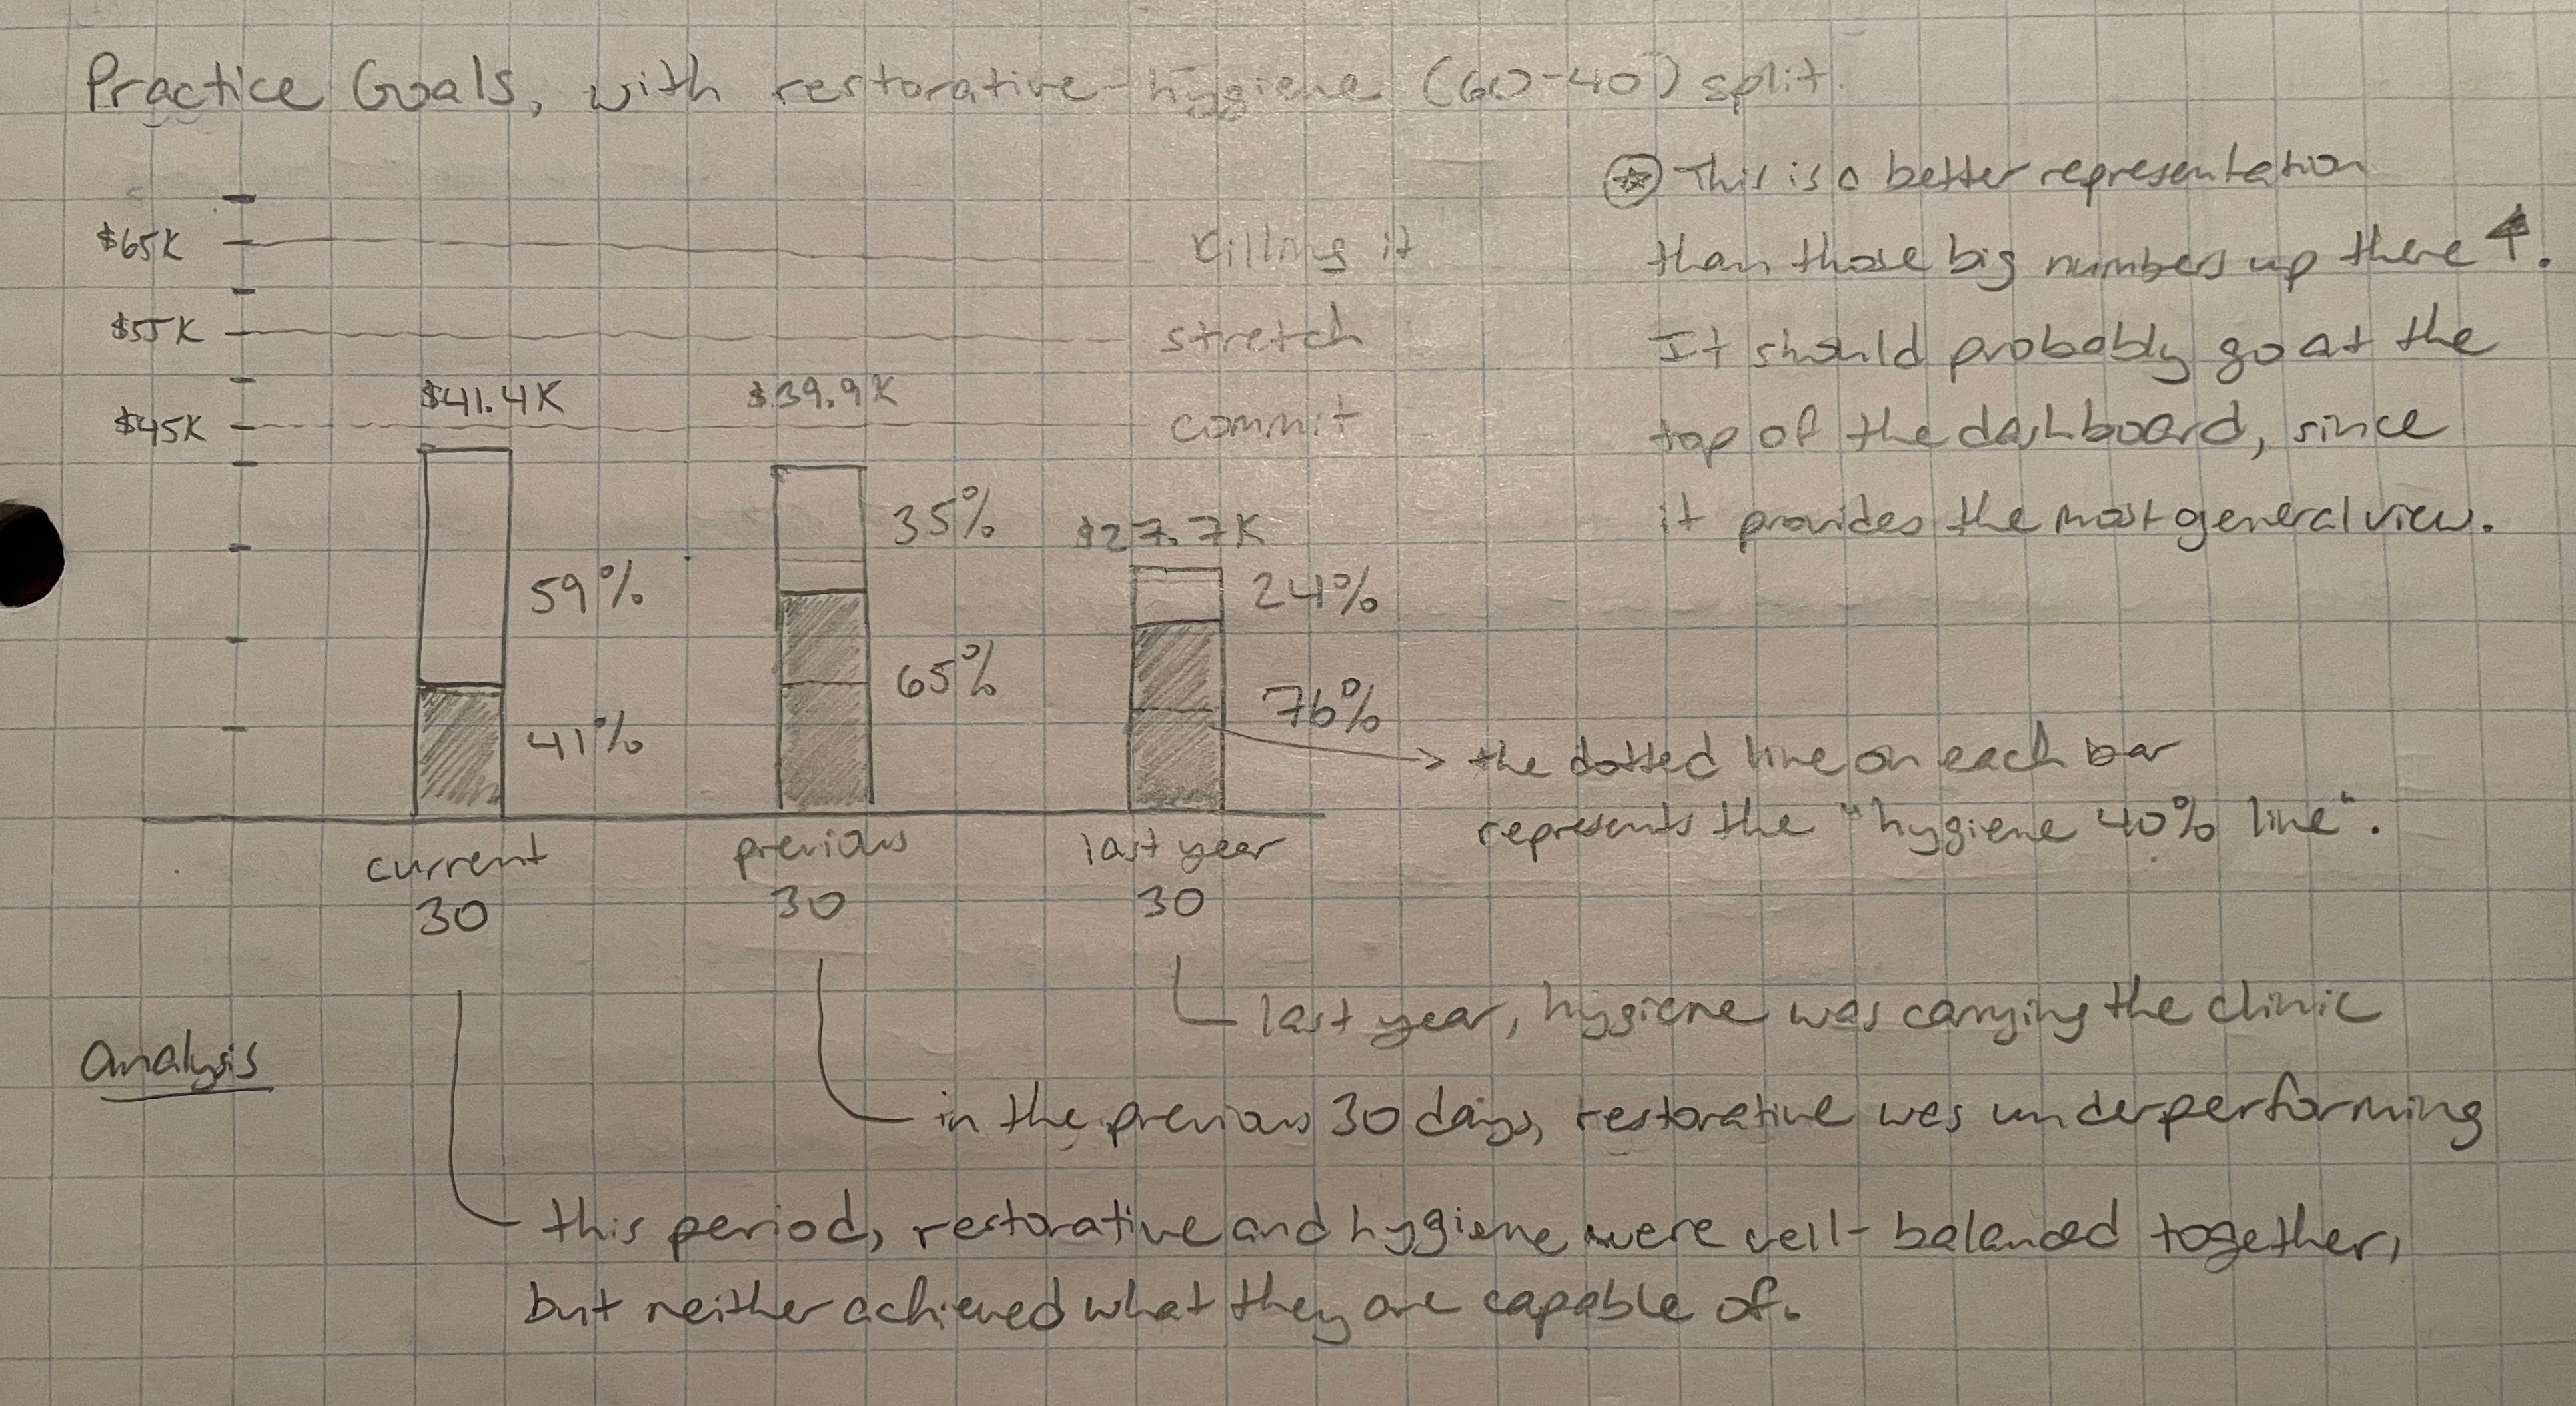 Practice Goals, with restorative-hygiene (60-40) split.
This is a better representation
than those big numbers up there ↑.
It should probably go at the
top of the dashboard, since
it provides the most general view.
$65K
killing it
$55K
stretch
$41.4K
$39.9K
$45K
commit
35%
$27.7K
59%
24%
65%
76%
41%
the dotted line on each bar
represents the "hygiene 40% line".
current
30
previous
30
last year
30
last year, hygiene was carrying the clinic
analysis
in the previous 30 days, restorative was underperforming
this period, restorative and hygiene were well-balanced together,
but neither achieved what they are capable of.